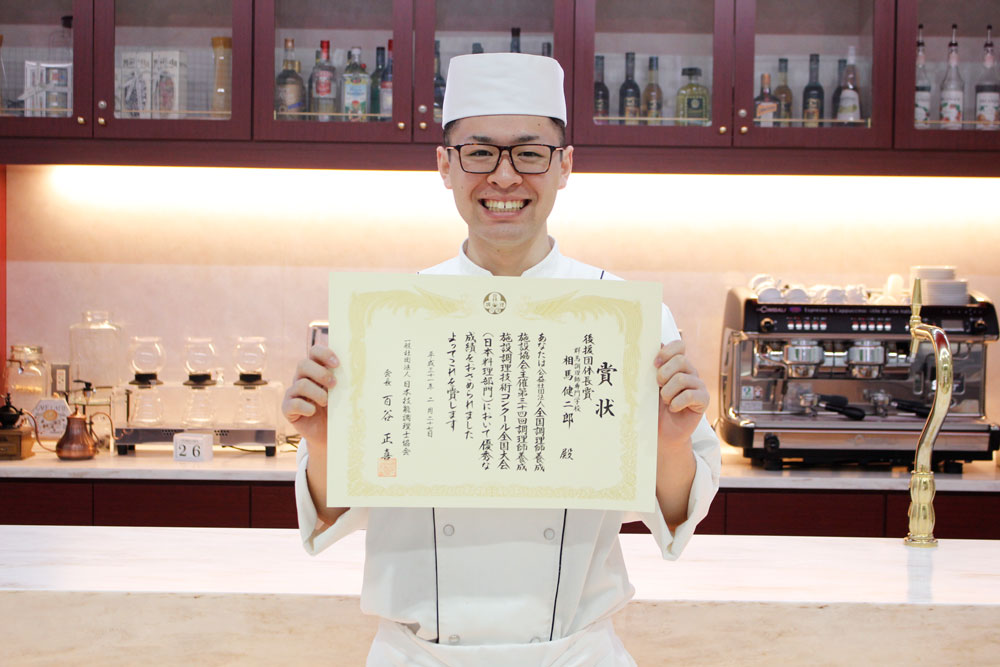 賞状
後援団体長賞
群馬調理師専門学校
相馬 健二郎 殿
あなたは公益社団法人全国調理師養成
施設協会主催第三十四回調理師養成
施設調理技術コンクール全国大会
(日本料理部門)において優秀な
成績をおさめられました
よってこれを賞します
平成三十一年 二月二十七日
一般社団法人 日本技能調理士協会
会長 百谷 正喜
26